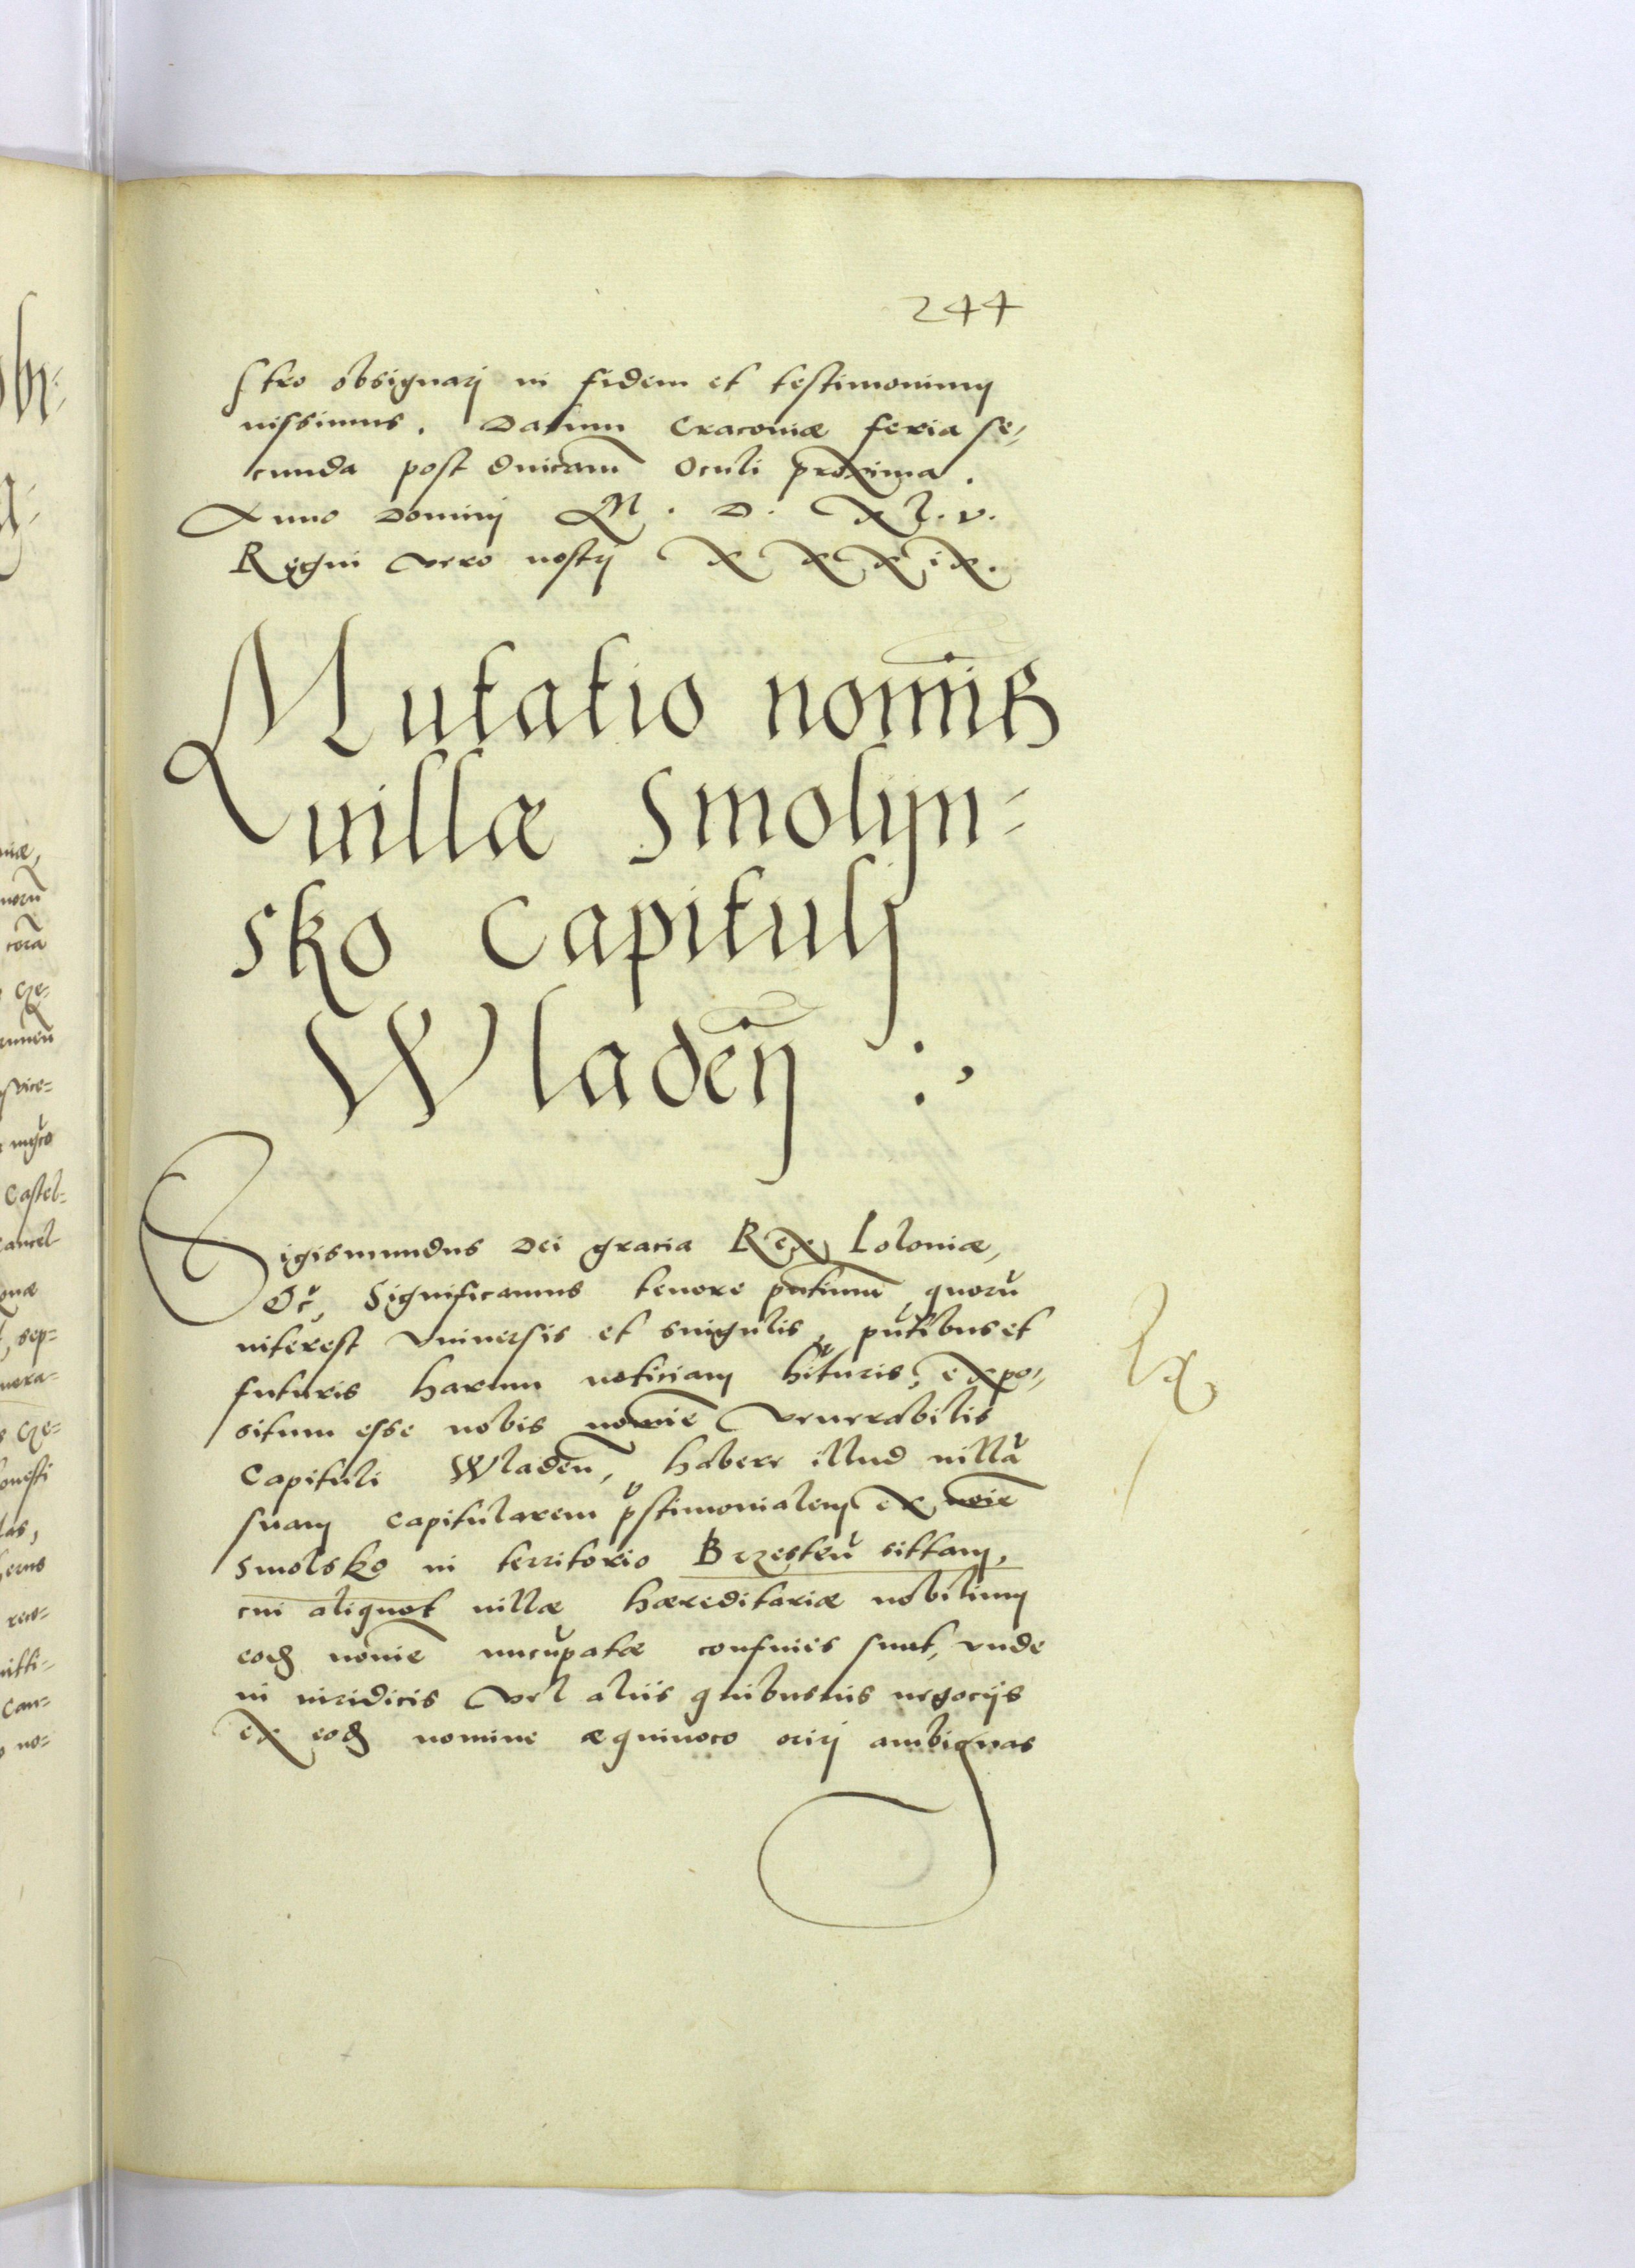 244
stro obsignarj in fidem et testimonium
iussimus. Datum Cracoviæ feria se,,
cunda post dnicam̄ Oculi proxima.
Anno Dominj M. D. xl.v.
Regni vero nostrj x x x ix.
Mutatio nomīs
villæ Smolyn-
sko Capitulj
Wladeñ :,
Sigismundus Dei gracia Rex Poloniæ,
&c̃, Significamus tenore pntium̄ quorũ
interest vniuersis et singulis, pñtibus et
futuris harum noticiam hĩturis, expo,,
situm esse nobis nomīe venerabilis
Capituli Wladeñ, habere illud villã
suam capitularem p̃stimonialem ex noīe
Smolsko in territorio Brzesteñ sittam,
cui aliquot villæ hæreditariæ nobilium
eodẽ nomīe nũcupatæ confines sunt, vnde
in iuridicis vel aliis quibusuis negocijs
ex eodẽ nomine æquiuoco orirj ambiguas